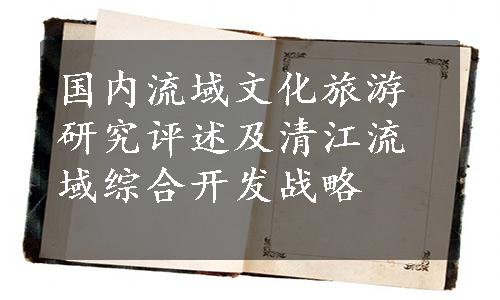 国内流域文化旅游
研究评述及清江流
域综合开发战略